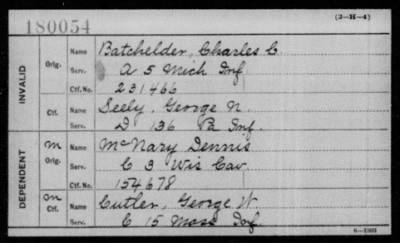 180054
(3—H—4)
INVALID
Orig. Name Batchelder, Charles C.
Serv. A 5 Mich Inf.
Ctf. No. 231466
Ctf. Name Seely, George N.
Serv. D 136 Pa Inf.
DEPENDENT
m Orig. Name McNary Dennis
Serv. C 3 Wis Cav.
Ctf. No. 154678
m Ctf. Name Cutler, George W.
Serv. C 15 Mass Inf.